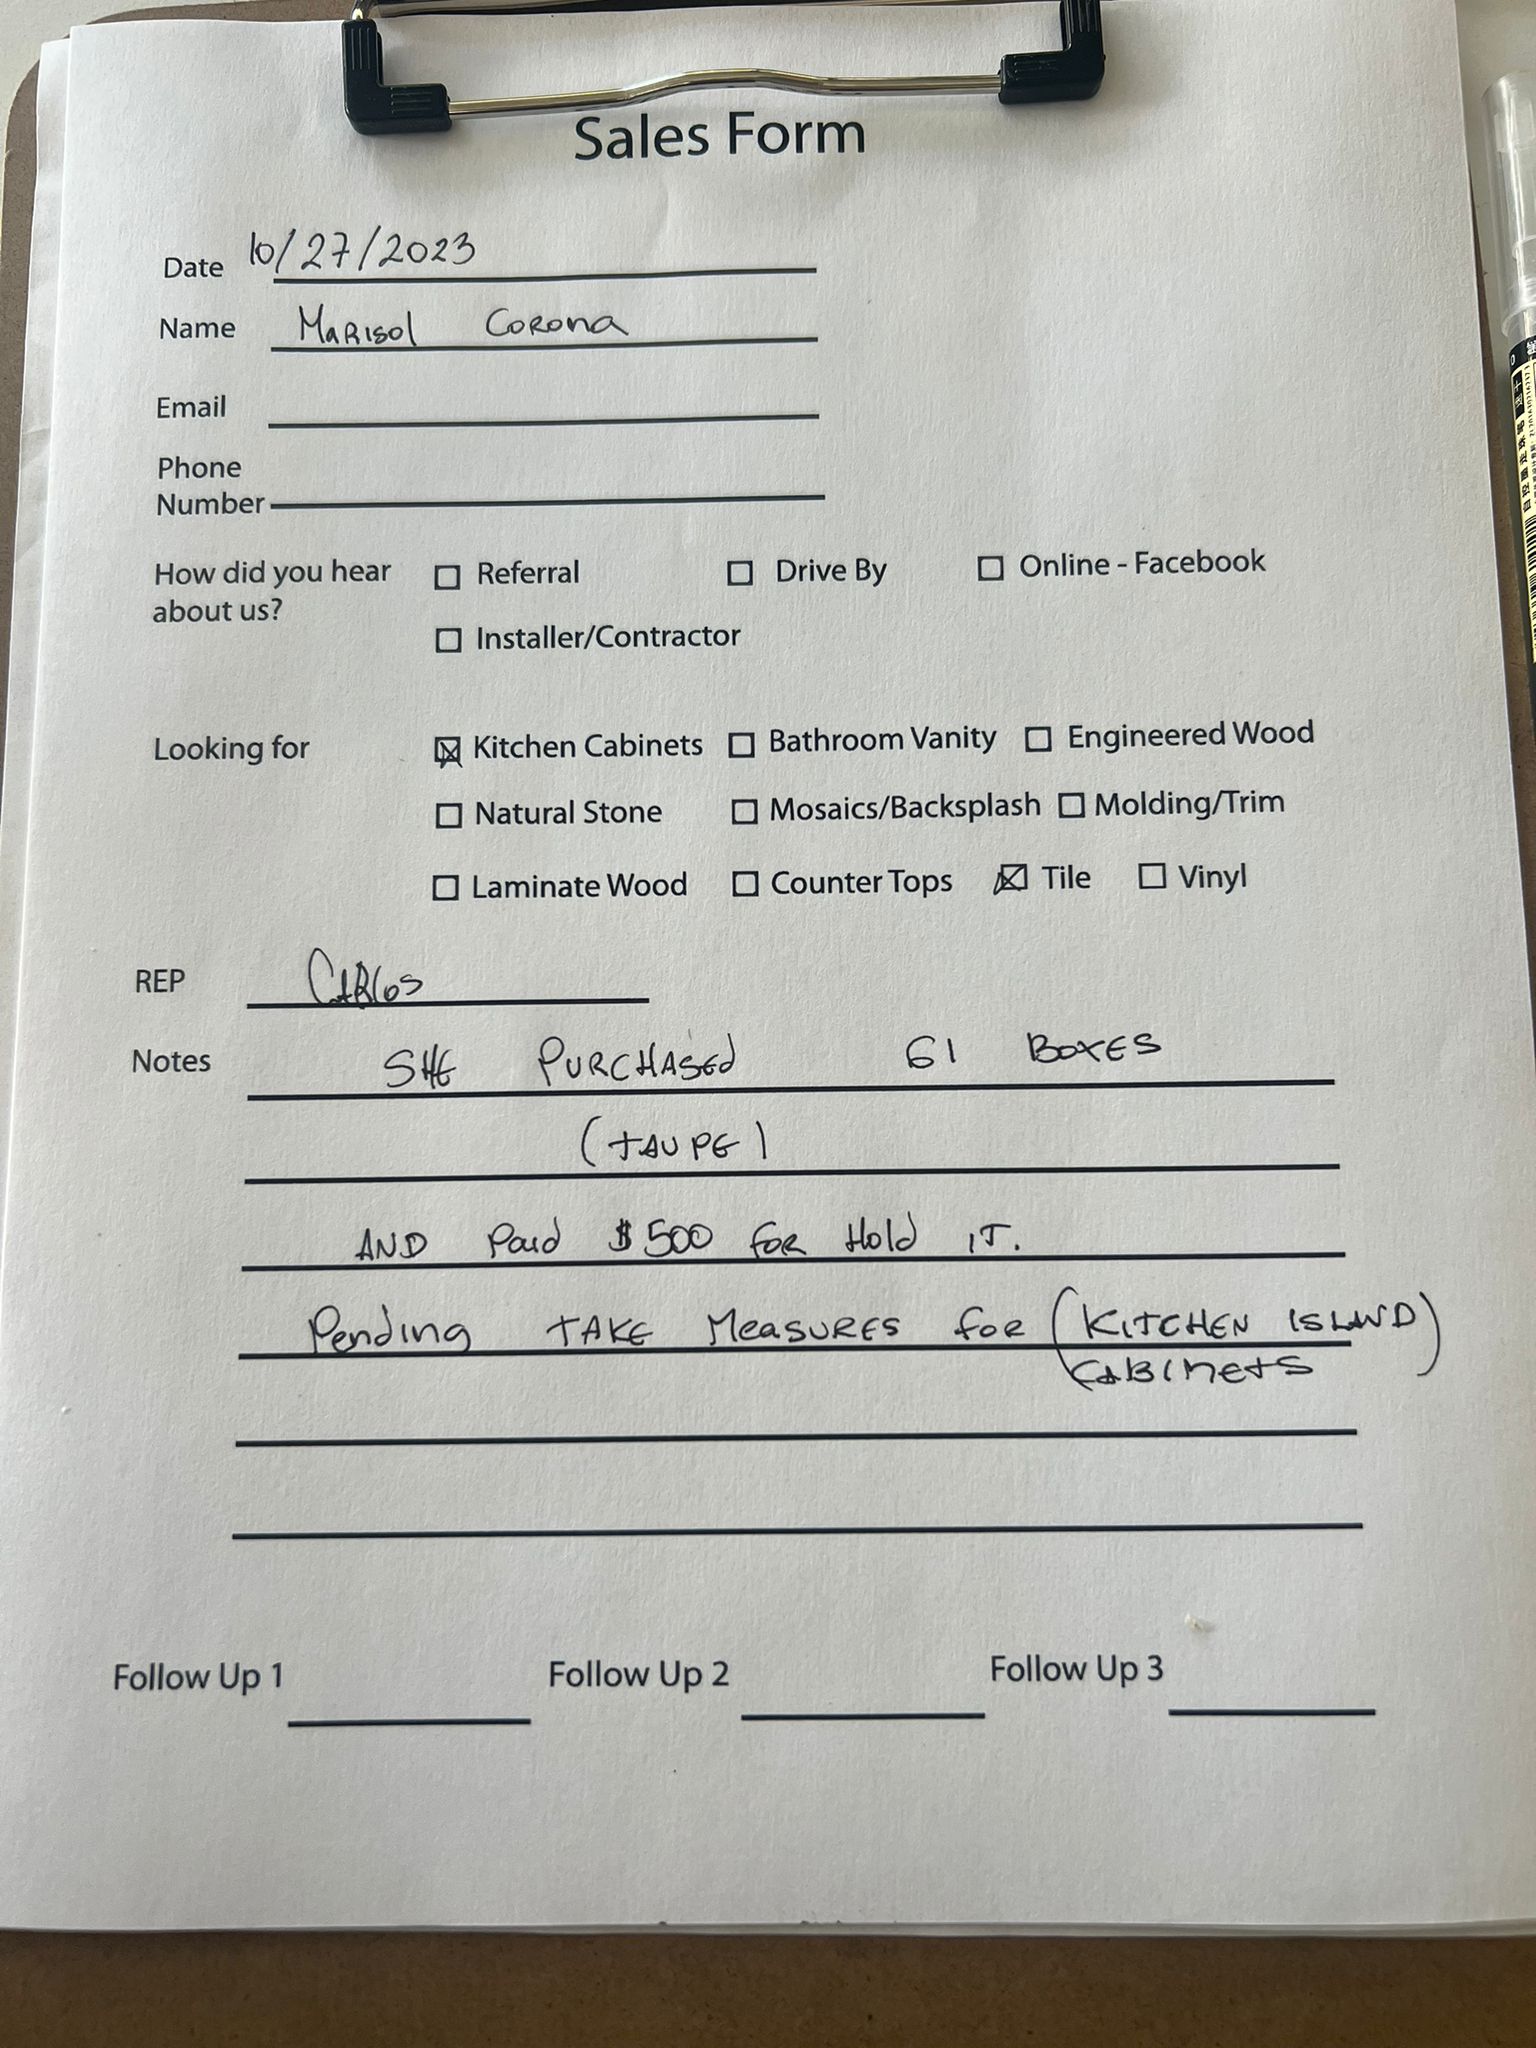 Sales Form
Date 10/27/2023
Name Marisol Corona
Email
Phone
Number
How did you hear
about us?
☐ Referral ☐ Drive By ☐ Online - Facebook
☐ Installer/Contractor
Looking for ☒ Kitchen Cabinets ☐ Bathroom Vanity ☐ Engineered Wood
☐ Natural Stone ☐ Mosaics/Backsplash ☐ Molding/Trim
☐ Laminate Wood ☐ Counter Tops ☒ Tile ☐ Vinyl
REP Carlos
Notes SHE PURCHASEd 61 BOXES
(TAUPE)
AND Paid $500 FOR Hold IT.
Pending TAKE MeaSURES FOR (KITCHEN ISLAND)
CABINETS
Follow Up 1 Follow Up 2 Follow Up 3